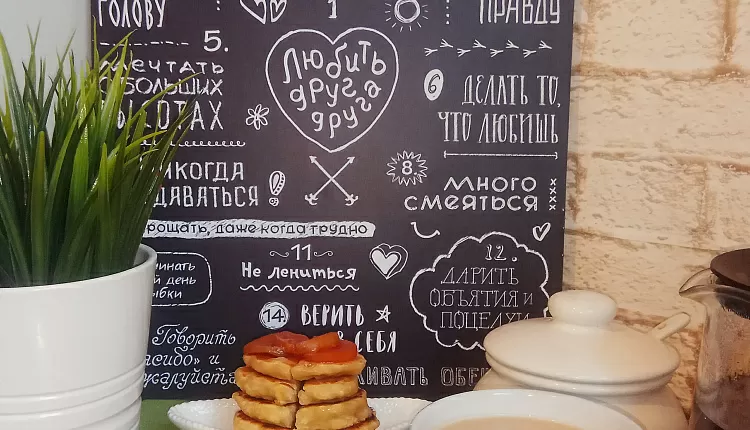 ГОЛОВУ
1
ПРАВДУ
5.
МЕЧТАТЬ
О БОЛЬШИХ
ВЫСОТАХ
Любить
друг
друга
6
ДЕЛАТЬ ТО,
ЧТО ЛЮБИШЬ
НИКОГДА
ДАВАТЬСЯ
8.
МНОГО
СМЕЯТЬСЯ
РОЩАТЬ, ДАЖЕ КОГДА ТРУДНО
11
Не лениться
12.
ДАРИТЬ
ОБЪЯТИЯ И
ПОЦЕЛУИ
ЧИНАТЬ
Й ДЕНЬ
ЫБКИ
14
ВЕРИТЬ
В СЕБЯ
Говорить
асибо» и
жалуйста
ЖИВАТЬ ОБЕ